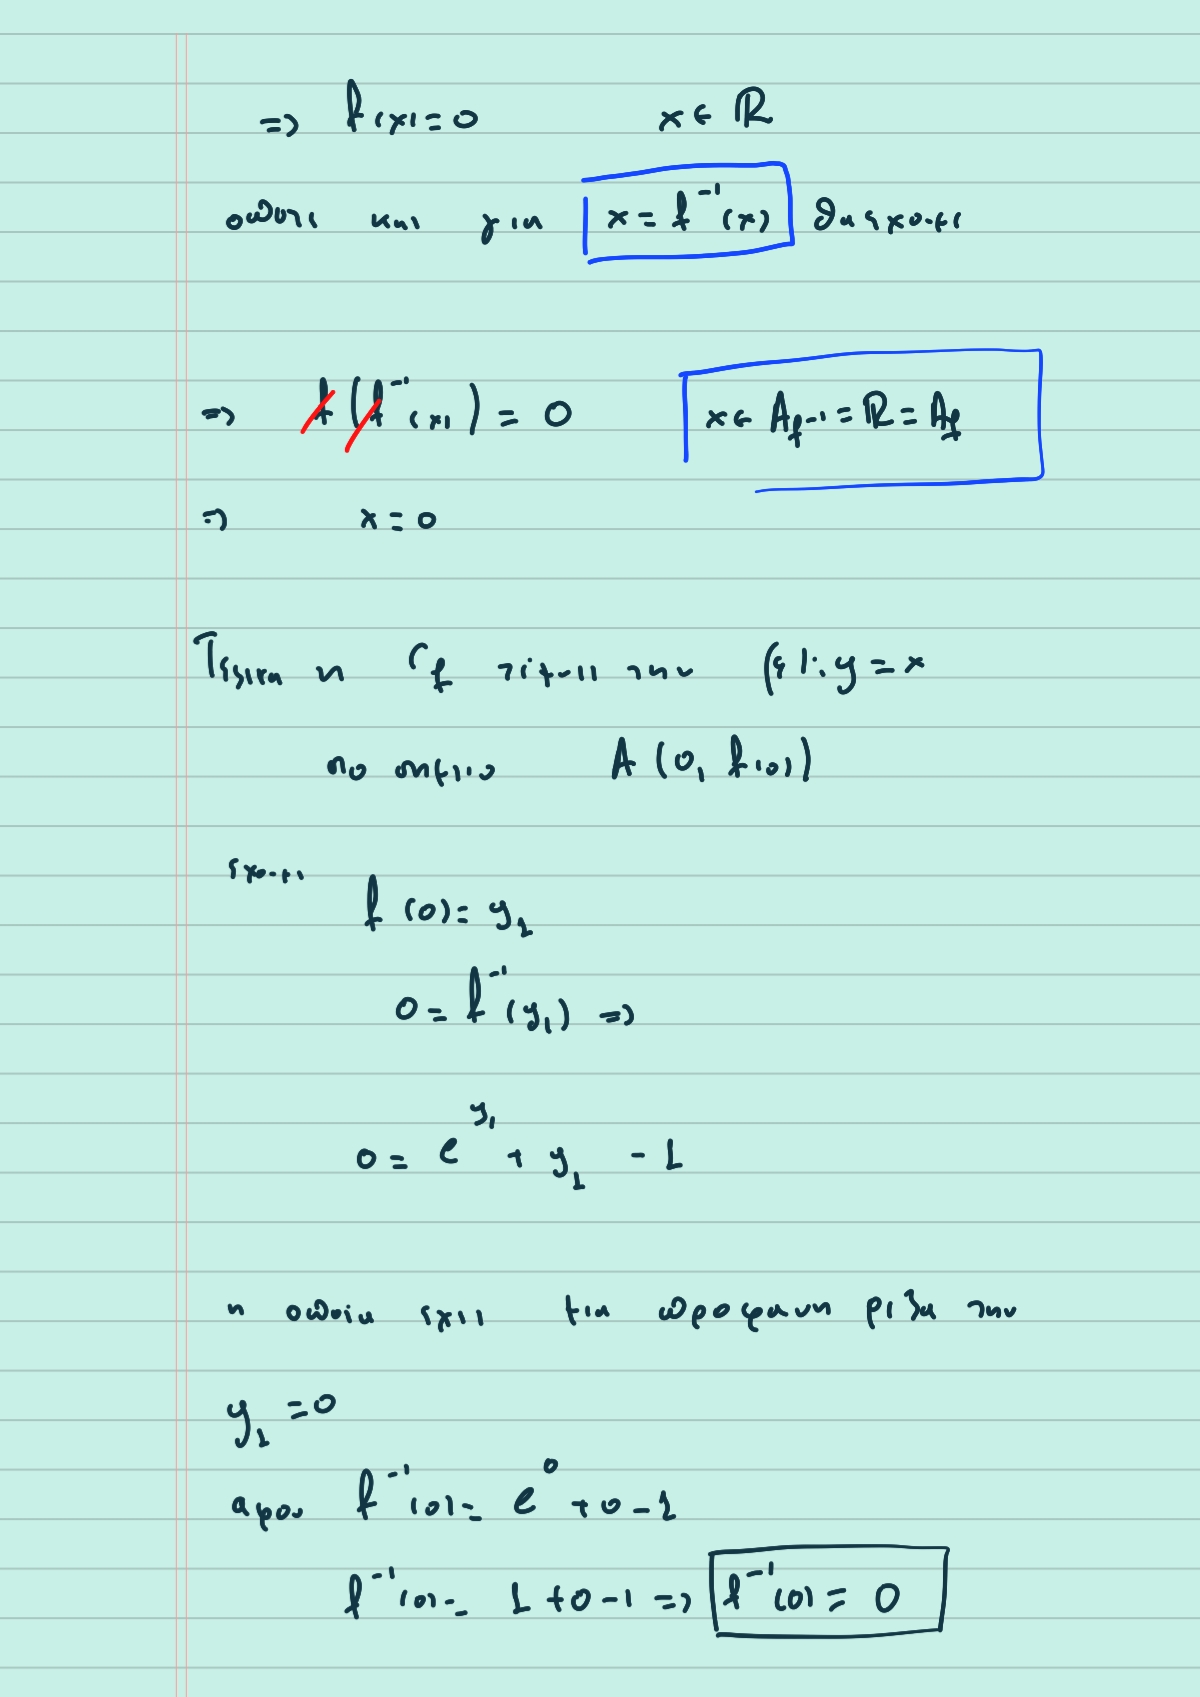 ⇒ f(x)=0 x∈ℝ
οπότε και για x = f⁻¹(x) θα έχουμε
⇒ f(f⁻¹(x)) = 0 x∈A_f⁻¹ = ℝ = A_f
⇒ x=0
η C_f τέμνει την (ε): y = x
το σημείο A(0, f(0))
έχουμε
f(0)=y₁
0=f⁻¹(y₁) ⇒
0= e^y₁ + y₁ - 1
η οποία έχει μια προφανή ρίζα την
y₁=0
αφού f⁻¹(0)= e⁰+0-1
f⁻¹(0)= 1+0-1 ⇒ f⁻¹(0)= 0